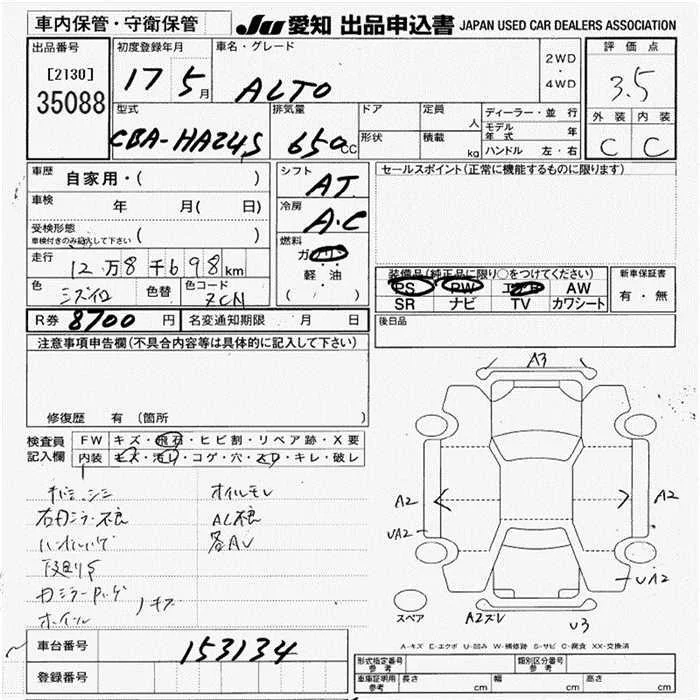 車内保管・守衛保管
JU 愛知 出品申込書 JAPAN USED CAR DEALERS ASSOCIATION
出品番号
[2130]
35088
初度登録年月
17 5月
車名・グレード
ALTO
2WD
・
4WD
評価点
3.5
外装 内装
C C
型式
CBA-HA24S
排気量
650cc
ドア
形状
定員 人
積載 kg
ディーラー・並行
モデル年式 年
ハンドル 左・右
車歴 自家用・( )
車検 年 月( 日)
受検形態
車検付きのみ記入して下さい ( )
走行 12万8千698km
色 色替 色コード
ZCM
シフト
AT
冷房
A.C
燃料
ガソリン
軽・油
( )
セールスポイント(正常に機能するものに限ります)
装備品(純正品に限り〇をつけてください)
PS PW エアB AW
SR ナビ TV カワシート
新車保証書
有・無
後日品
R券 8700円 名変通知期限 月 日
注意事項申告欄(不具合内容等は具体的に記入して下さい)
修復歴 有 (箇所 )
検査員記入欄
FW キズ・飛石・ヒビ割・リペア跡・X要
内装 キズ・汚レ・コゲ・穴・スレ・キレ・破レ
オイルモレ
右ドアミラー不良 AC不良
各AU
下廻りS
ホイール キズ
A3
A2
A2
UA2
UA2
スペア
A2ズレ
U3
A-キズ E-エクボ U-凹み W-補修跡 S-サビ C-腐食 XX-交換済
車台番号 153134
登録番号
形式指定番号 参考
類別区分番号 参考
車庫証明用 参考 長さ cm 幅 cm 高さ cm